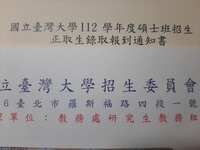 國立臺灣大學112學年度碩士班招生
正取生錄取報到通知書
立臺灣大學招生委員會
6臺北市羅斯福路四段一號
單位:教務處研究生教務組